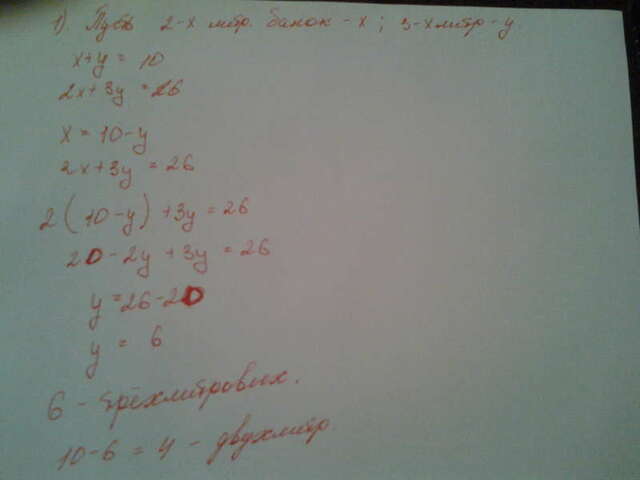 1). Пусть 2-х литр. банок - x ; 3-х литр - y.
x+y = 10
2x+3y = 26
x = 10-y
2x+3y = 26
2(10-y)+3y = 26
20-2y+3y = 26
y = 26-20
y = 6
6 - трёхлитровых.
10-6 = 4 - двухлитр.